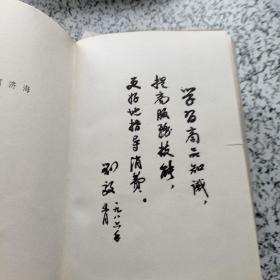 学习商品知识，
提高服務技能，
更好地指导消费。
刘毅
一九八六年
月
济海